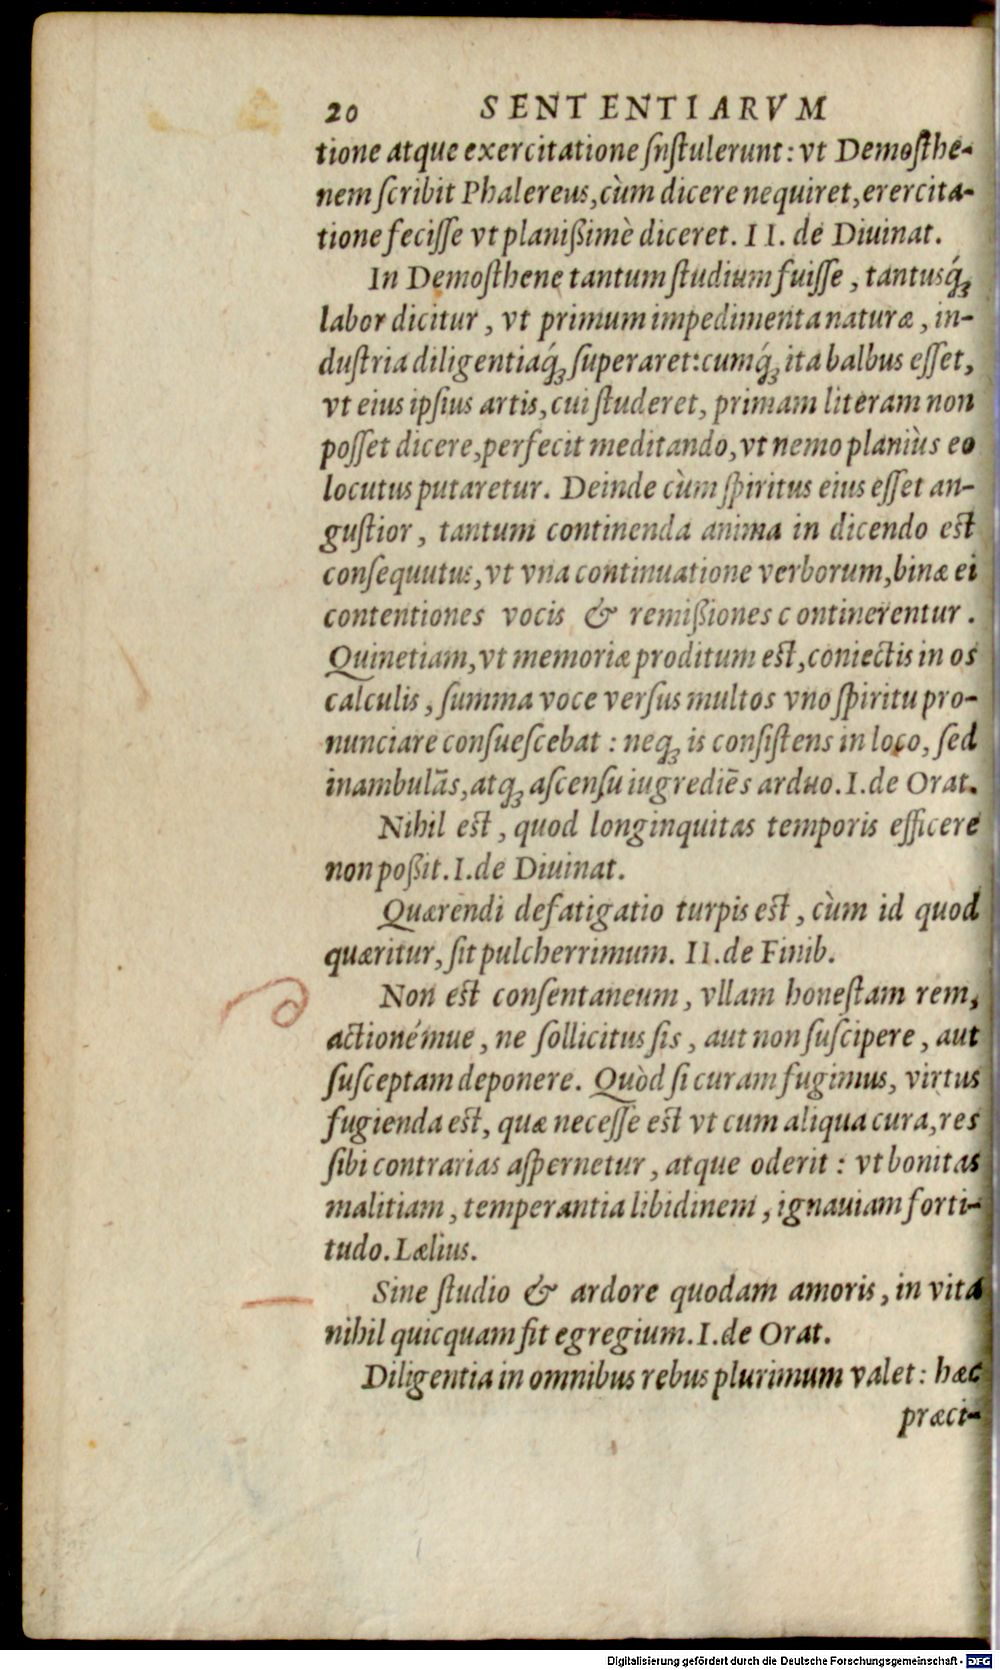 20 SENTENTIARVM
tione atque exercitatione ſnſtulerunt: vt Demoſthe-
nem ſcribit Phalereus, cùm dicere nequiret, erercita-
tione feciſſe vt planißimè diceret. II. de Diuinat.
In Demoſthene tantum ſtudium fuiſſe, tantusq́ꝫ
labor dicitur, vt primum impedimenta naturæ, in-
duſtria diligentiaq́ꝫ ſuperaret: cumq́ꝫ ita balbus eſſet,
vt eius ipſius artis, cui ſtuderet, primam literam non
poſſet dicere, perfecit meditando, vt nemo planiùs eo
locutus putaretur. Deinde cùm ſpiritus eius eſſet an-
guſtior, tantum continenda anima in dicendo eſt
conſequutus, vt vna continuatione verborum, binæ ei
contentiones vocis & remißiones c ontinerentur.
Quinetiam, vt memoriæ proditum eſt, coniectis in os
calculis, ſumma voce verſus multos vno ſpiritu pro-
nunciare conſueſcebat: neqꝫ is conſiſtens in loco, ſed
inambulãs, atqꝫ aſcenſu iugrediẽs arduo. I. de Orat.
Nihil eſt, quod longinquitas temporis efficere
non poßit. I. de Diuinat.
Quærendi defatigatio turpis eſt, cùm id quod
quæritur, ſit pulcherrimum. II. de Finib.
Non eſt conſentaneum, vllam honeſtam rem,
actionémue, ne ſollicitus ſis, aut non ſuſcipere, aut
ſuſceptam deponere. Quòd ſi curam fugimus, virtus
fugienda eſt, quæ neceſſe eſt vt cum aliqua cura, res
ſibi contrarias aſpernetur, atque oderit: vt bonitas
malitiam, temperantia libidinem, ignauiam forti-
tudo. Lælius.
Sine ſtudio & ardore quodam amoris, in vita
nihil quicquam fit egregium. I. de Orat.
Diligentia in omnibus rebus plurimum valet: hæc
præci-
Digitalisierung gefördert durch die Deutsche Forschungsgemeinschaft - DFG